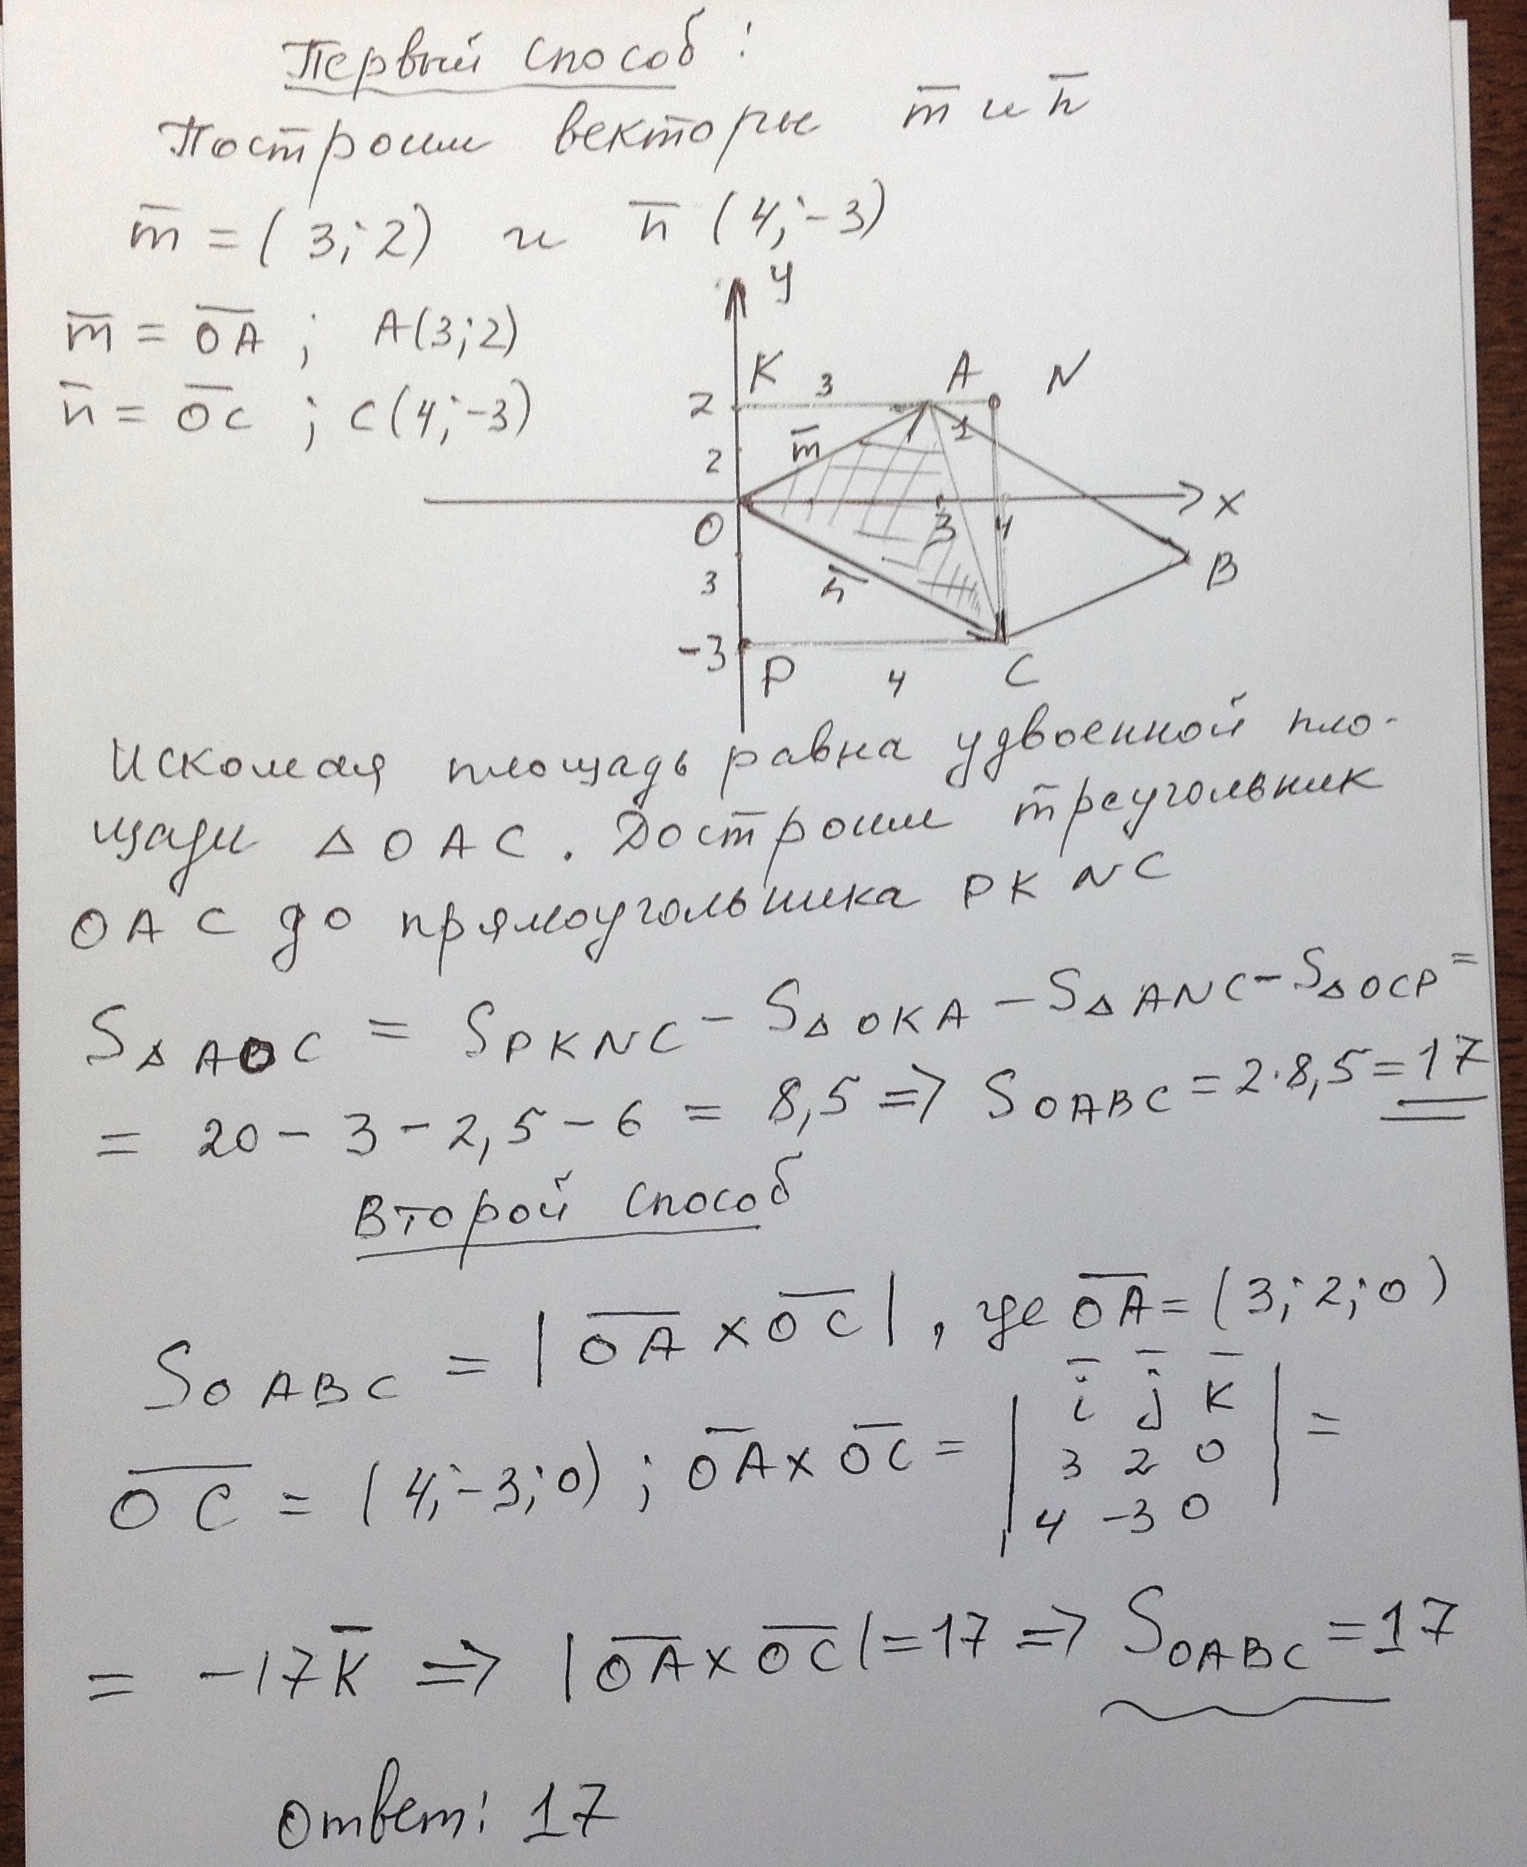 Первый способ:
Построим векторы m̅ и n̅
m̅ = (3; 2) и n̅ (4; -3)
m̅ = O̅A̅ ; A(3; 2)
n̅ = O̅C̅ ; C(4; -3)
y
K 3 A N
2
m̅ 1
2
O 3 4 x
3 n̅ B
-3 P 4 C
Искомая площадь равна удвоенной пло-
щади △ OAC. Достроим треугольник
OAC до прямоугольника PKNC
S△AOC = SPKNC - S△OKA - S△ANC - S△OCP =
= 20 - 3 - 2,5 - 6 = 8,5 => SOABC = 2·8,5 = 17
Второй способ
SOABC = |O̅A̅ × O̅C̅|, где O̅A̅ = (3; 2; 0)
O̅C̅ = (4; -3; 0) ; O̅A̅ × O̅C̅ = | i̅ j̅ k̅ | =
3 2 0
4 -3 0
= -17k̅ => |O̅A̅ × O̅C̅| = 17 => SOABC = 17
Ответ: 17